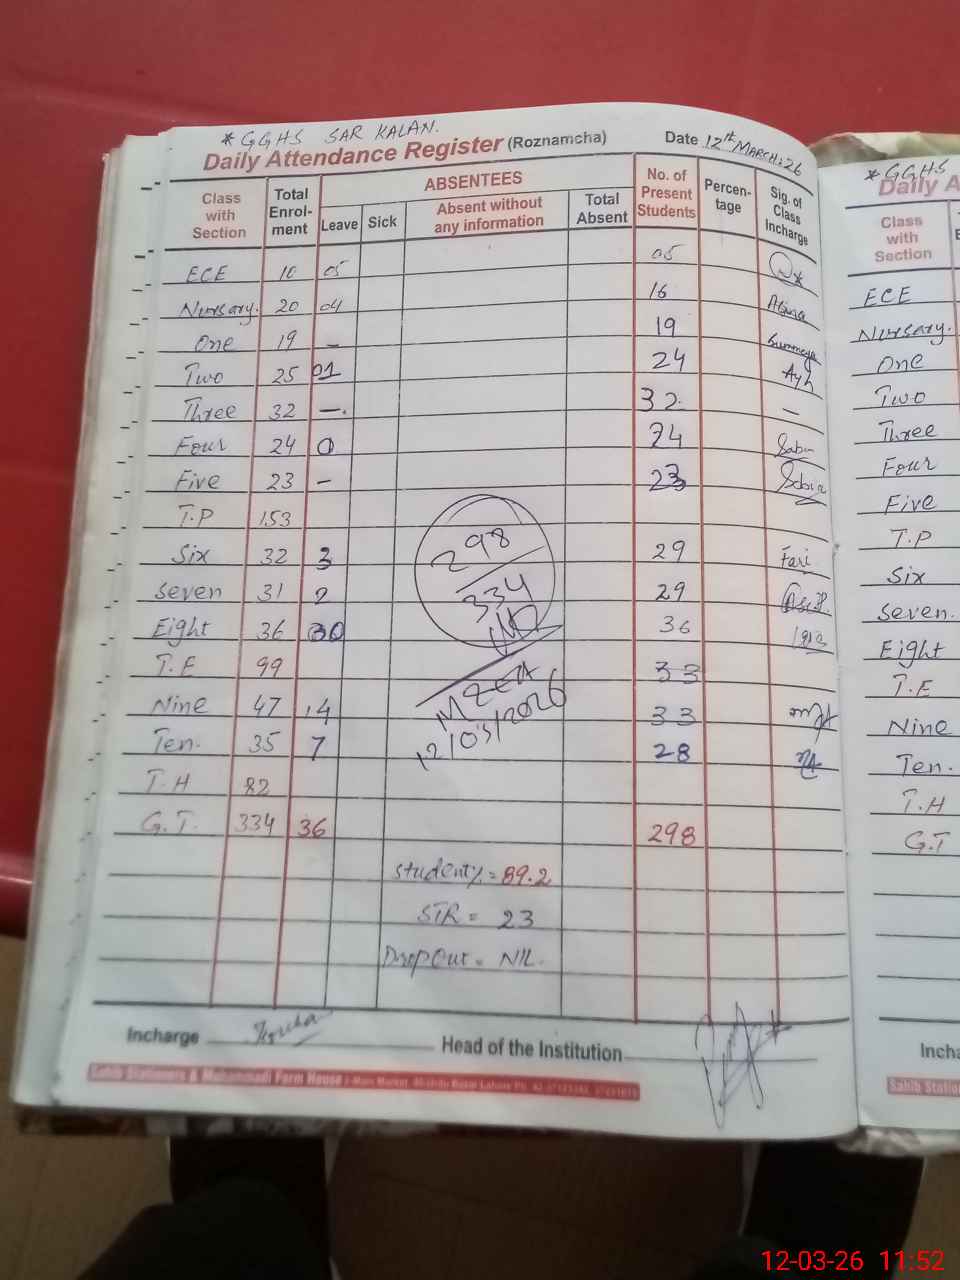 * GGHS SAR KALAN.
Daily Attendance Register (Roznamcha) Date 12th MARCH:26
Class with Section Total Enrol-ment ABSENTEES No. of Present Students Percen-tage Sig. of Class Incharge
Leave Sick Absent without any information Total Absent
ECE 10 05 05
Nursary. 20 04 16
One 19 – 19
Two 25 01 24
Three 32 –. 32 –
Four 24 0 24
Five 23 – 23
T.P 153
Six 32 3 29 Fari
Seven 31 2 29
Eight 36 30 36
T.E 99 33
Nine 47 14 33
Ten. 35 7 28
T.H 82
G.T. 334 36 298
298
334
MEEA
12/03/2026
Student% = 89.2
STR = 23
DropOut = NIL.
Incharge Head of the Institution
Sahib Stationers & Muhammadi Form House
* GGHS
Daily A
Class with Section
ECE
Nursary.
One
Two
Three
Four
Five
T.P
Six
Seven.
Eight
T.E
Nine
Ten.
T.H
G.T
Incha
Sahib Station
12-03-26 11:52